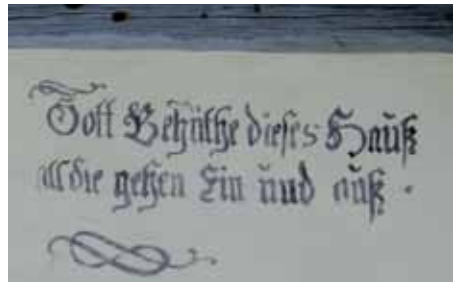 Gott Behüthe dieses Hauß
all die gehen Ein und auß.